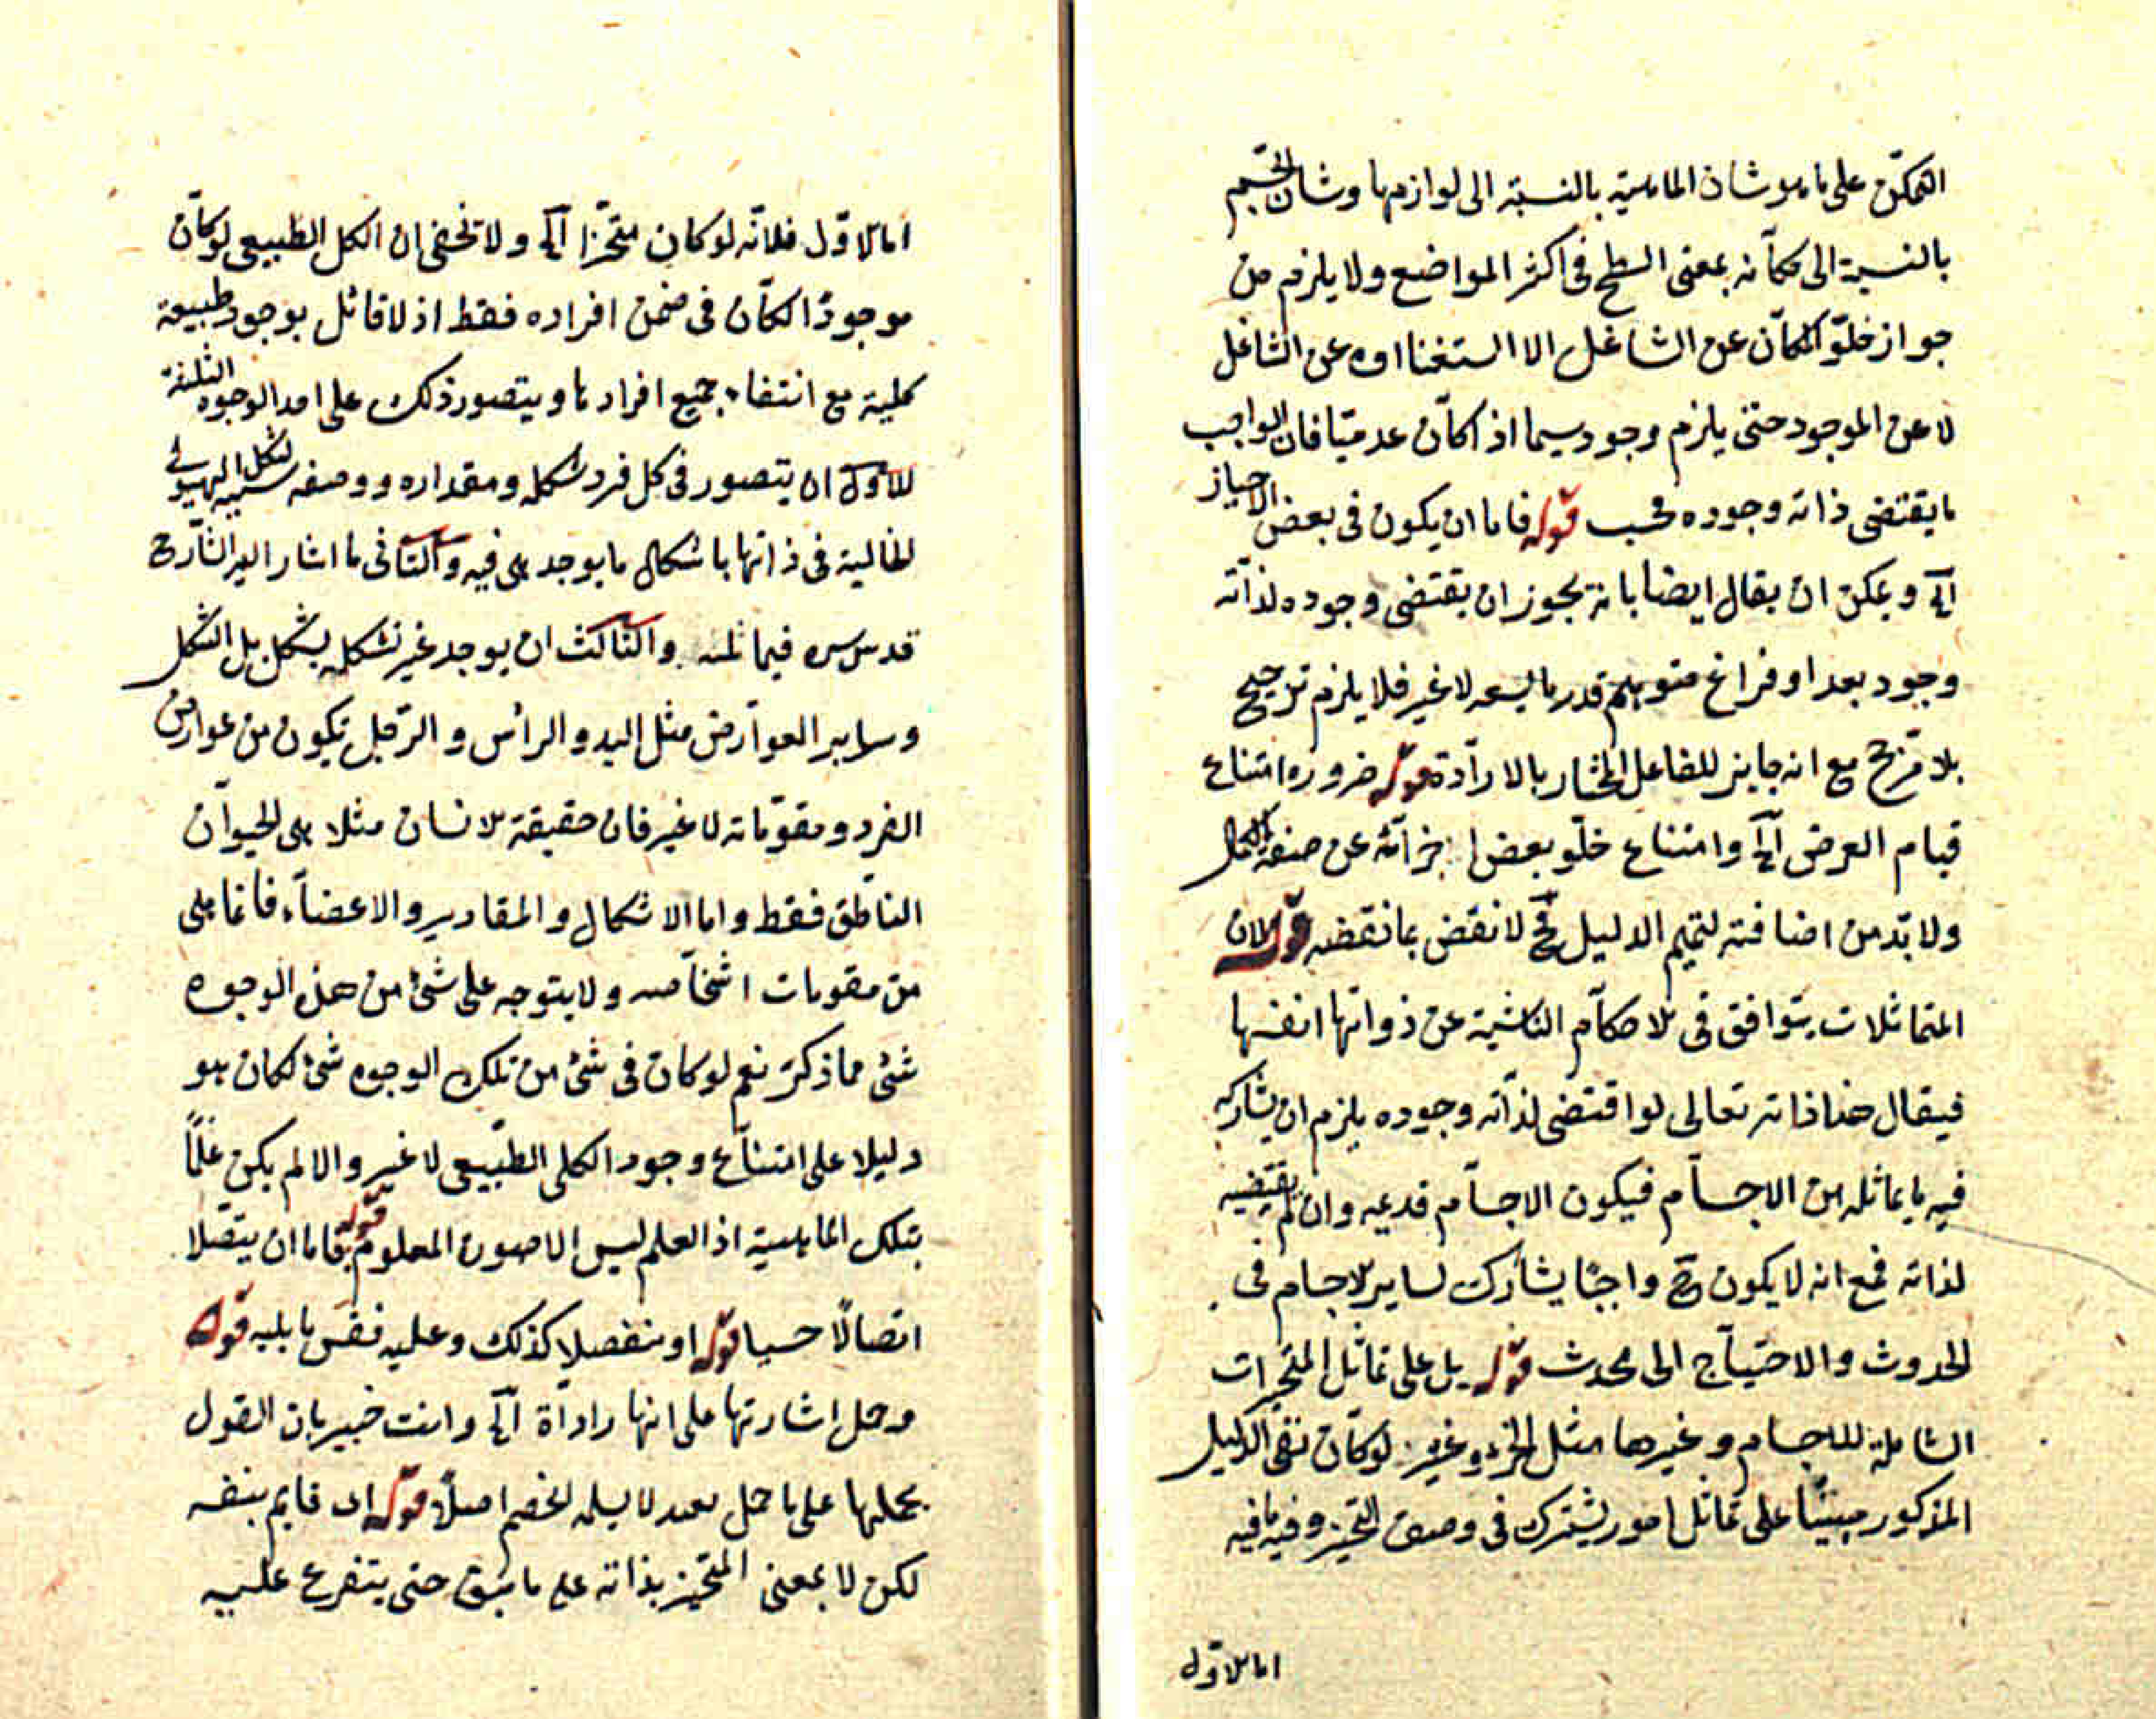 التمكن على ما هو شان الماهية بالنسبة الى لوازمها وشان الجسم
بالنسبة الى مكانه بمعنى السطح فى اكثر المواضع ولا يلزم من
جواز خلو المكان عن الشاغل الا استغناؤه عن الشاغل
لا عن الموجود حتى يلزم وجوده سيما اذا كان عدميا فان الواجب
ما يقتضى ذاته وجوده فحسب قوله فاما ان يكون فى بعض الاحياز
آلخ ويمكن ان يقال ايضا بانه يجوز ان يقتضى وجوده لذاته
وجود بعد او فراغ متوهم قدر ما يسعه لا غير فلا يلزم ترجيح
بلا مرجح مع انه جايز للفاعل المختار بالارادة قوله ضرورة امتناع
قيام العرض آلخ وامتناع خلو بعض اجزائه عن صفة الكمال
ولا بد من اضافته لتتميم الدليل فح لا نقض بما نقضه قوله لان
المتماثلات يتوافق فى الاحكام الناشية عن ذواتها انفسها
فيقال هنا ذاته تعالى لو اقتضى لذاته وجوده يلزم ان يشاركه
فيه ما يماثله من الاجسام فيكون الاجسام قديمه وان لم يقتضيه
لذاته فمع انه لا يكون ح واجبا يشارك لساير الاجسام فى
الحدوث والاحتياج الى محدث قوله بل على تماثل المتحيزات
الشاملة للاجسام وغيرها مثل الجزء وغيره لو كان نفى الدليل
المذكور مبنيا على تماثل امور يشترك فى وصف التحيز وفيه ما فيه
اما الاول
اما الاول فلانه لو كان متحيزا آلخ ولا تخفى ان الكل الطبيعى لو كان
موجودا لكان فى ضمن افراده فقط اذ لا قائل بوجود طبيعة
كلية مع انتفاء جميع افرادها ويتصور ذلك على احد الوجوه الثلثة
الاول ان يتصور فى كل فرد شكله ومقداره ووصفه لشكل الهيولى
الخالية فى ذاتها باشكال ما يوجد هى فيه والثانى ما اشار اليه الشارح
قدس سره فيما ثلثه والثالث ان يوجد غير تشكله بشكل بل الشكل
وساير العوارض مثل اليد والرأس والرجل يكون من عوارض
الفرد ومقوماته لا غير فان حقيقة الانسان مثلا هى الحيوان
الناطق فقط واما الاشكال والمقادير والاعضاء فانما هى
من مقومات اشخاصه ولا يتوجه على شئ من هذه الوجوه
شئ مما ذكر نعم لو كان فى شئ من تلك الوجوه شئ لكان هو
دليلا على امتناع وجود الكلى الطبيعى لا غير والا لم يكن علما
بتلك الماهية اذ العلم ليس الا صورة المعلوم قوله فاما ان يتصلا
اتصالا حسيا قوله او منفصلا كذلك وعليه فقس ما يليه قوله
وحمل اشارتها على انها رادة آلخ وانت خبير بان القول
بحملها على ما حمل بعيد لا يسلمه الخصم اصلا قوله اى قايم بنفسه
لكن لا بمعنى المتحيز بذاته على ما سبق حتى يتفرع عليه